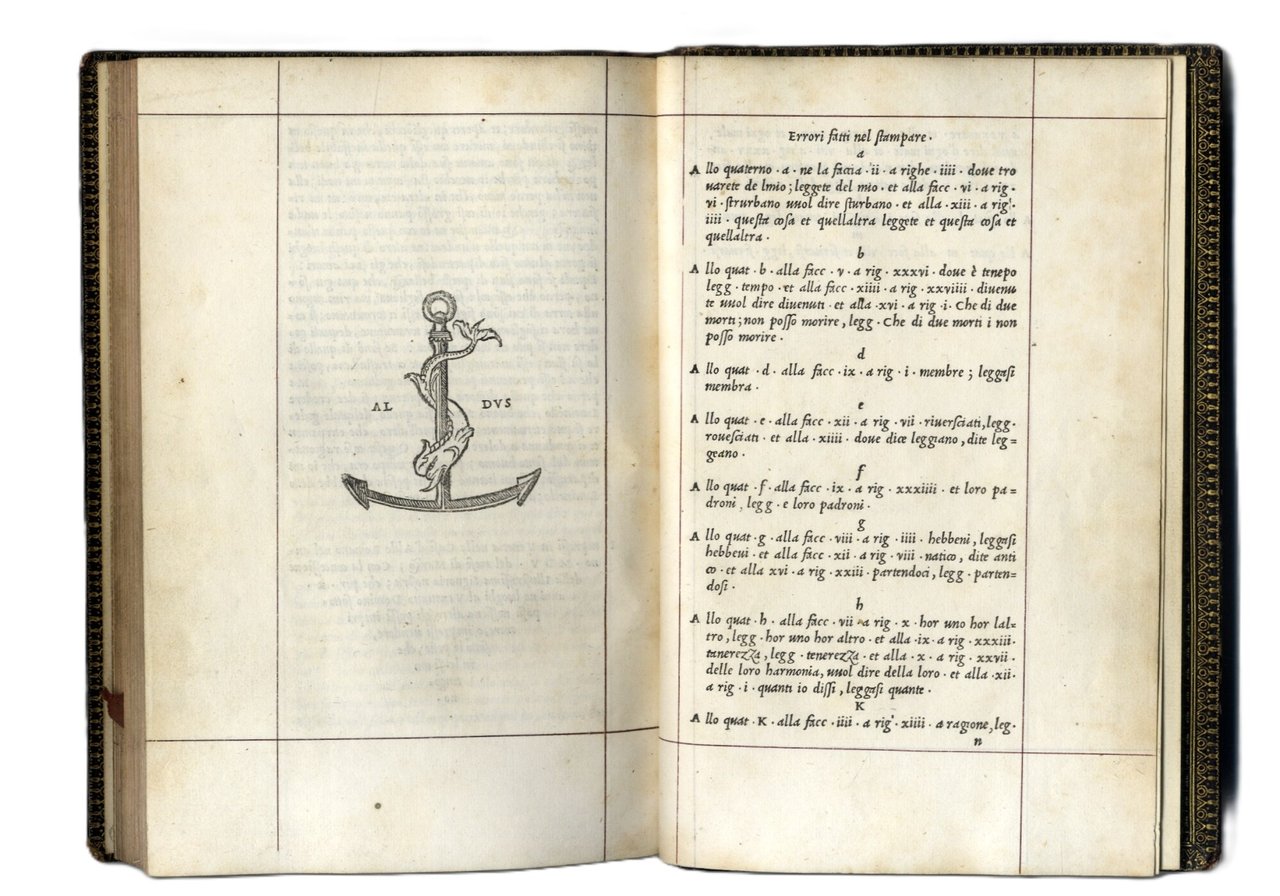 AL DVS
Errori fatti nel stampare ·
a
A llo quaterno · a · ne la faccia · ii · a righe · iiii · doue tro
uarete de lmio; leggete del mio · et alla facc · vi · a rig ·
vi · strurbano uuol dire sturbano · et alla · xiii · a rig ·
iiii · questa cosa et quellaltra leggete et questa cosa et
quellaltra ·
b
A llo quat · b · alla facc · v · a rig · xxxvi · doue è tenepo
legg · tempo · et alla facc · xiiii · a rig · xxviiii · diuenu
te uuol dire diuenuti · et alla · xvi · a rig · i · Che di due
morti; non posso morire, legg · Che di due morti i non
posso morire ·
d
A llo quat · d · alla facc · ix · a rig · i · membre ; leggasi
membra ·
e
A llo quat · e · alla facc · xii · a rig · vii · riuersciati, legg ·
rouesciati · et alla · xiiii · doue dice leggiano, dite leg=
geano ·
f
A llo quat · f · alla facc · ix · a rig · xxxiiii · et loro pa=
droni, legg · e loro padroni ·
g
A llo quat · g · alla facc · viii · a rig · iiii · hebbeni, leggasi
hebbeui · et alla facc · xii · a rig · viii · natico, dite anti
co · et alla xvi · a rig · xxiii · partendoci, legg · parten=
dosi ·
h
A llo quat · h · alla facc · vii · a rig · x · hor uno hor lal=
tro, legg · hor uno hor altro · et alla · ix · a rig · xxxiii ·
tanerezza, legg · tenerezza · et alla · x · a rig · xxvii ·
delle loro harmonia, uuol dire della loro · et alla · xii ·
a rig · i · quanti io dissi, leggasi quante ·
K
A llo quat · K · alla facc · iiii · a rig · xiiii · a ragione, leg ·
n